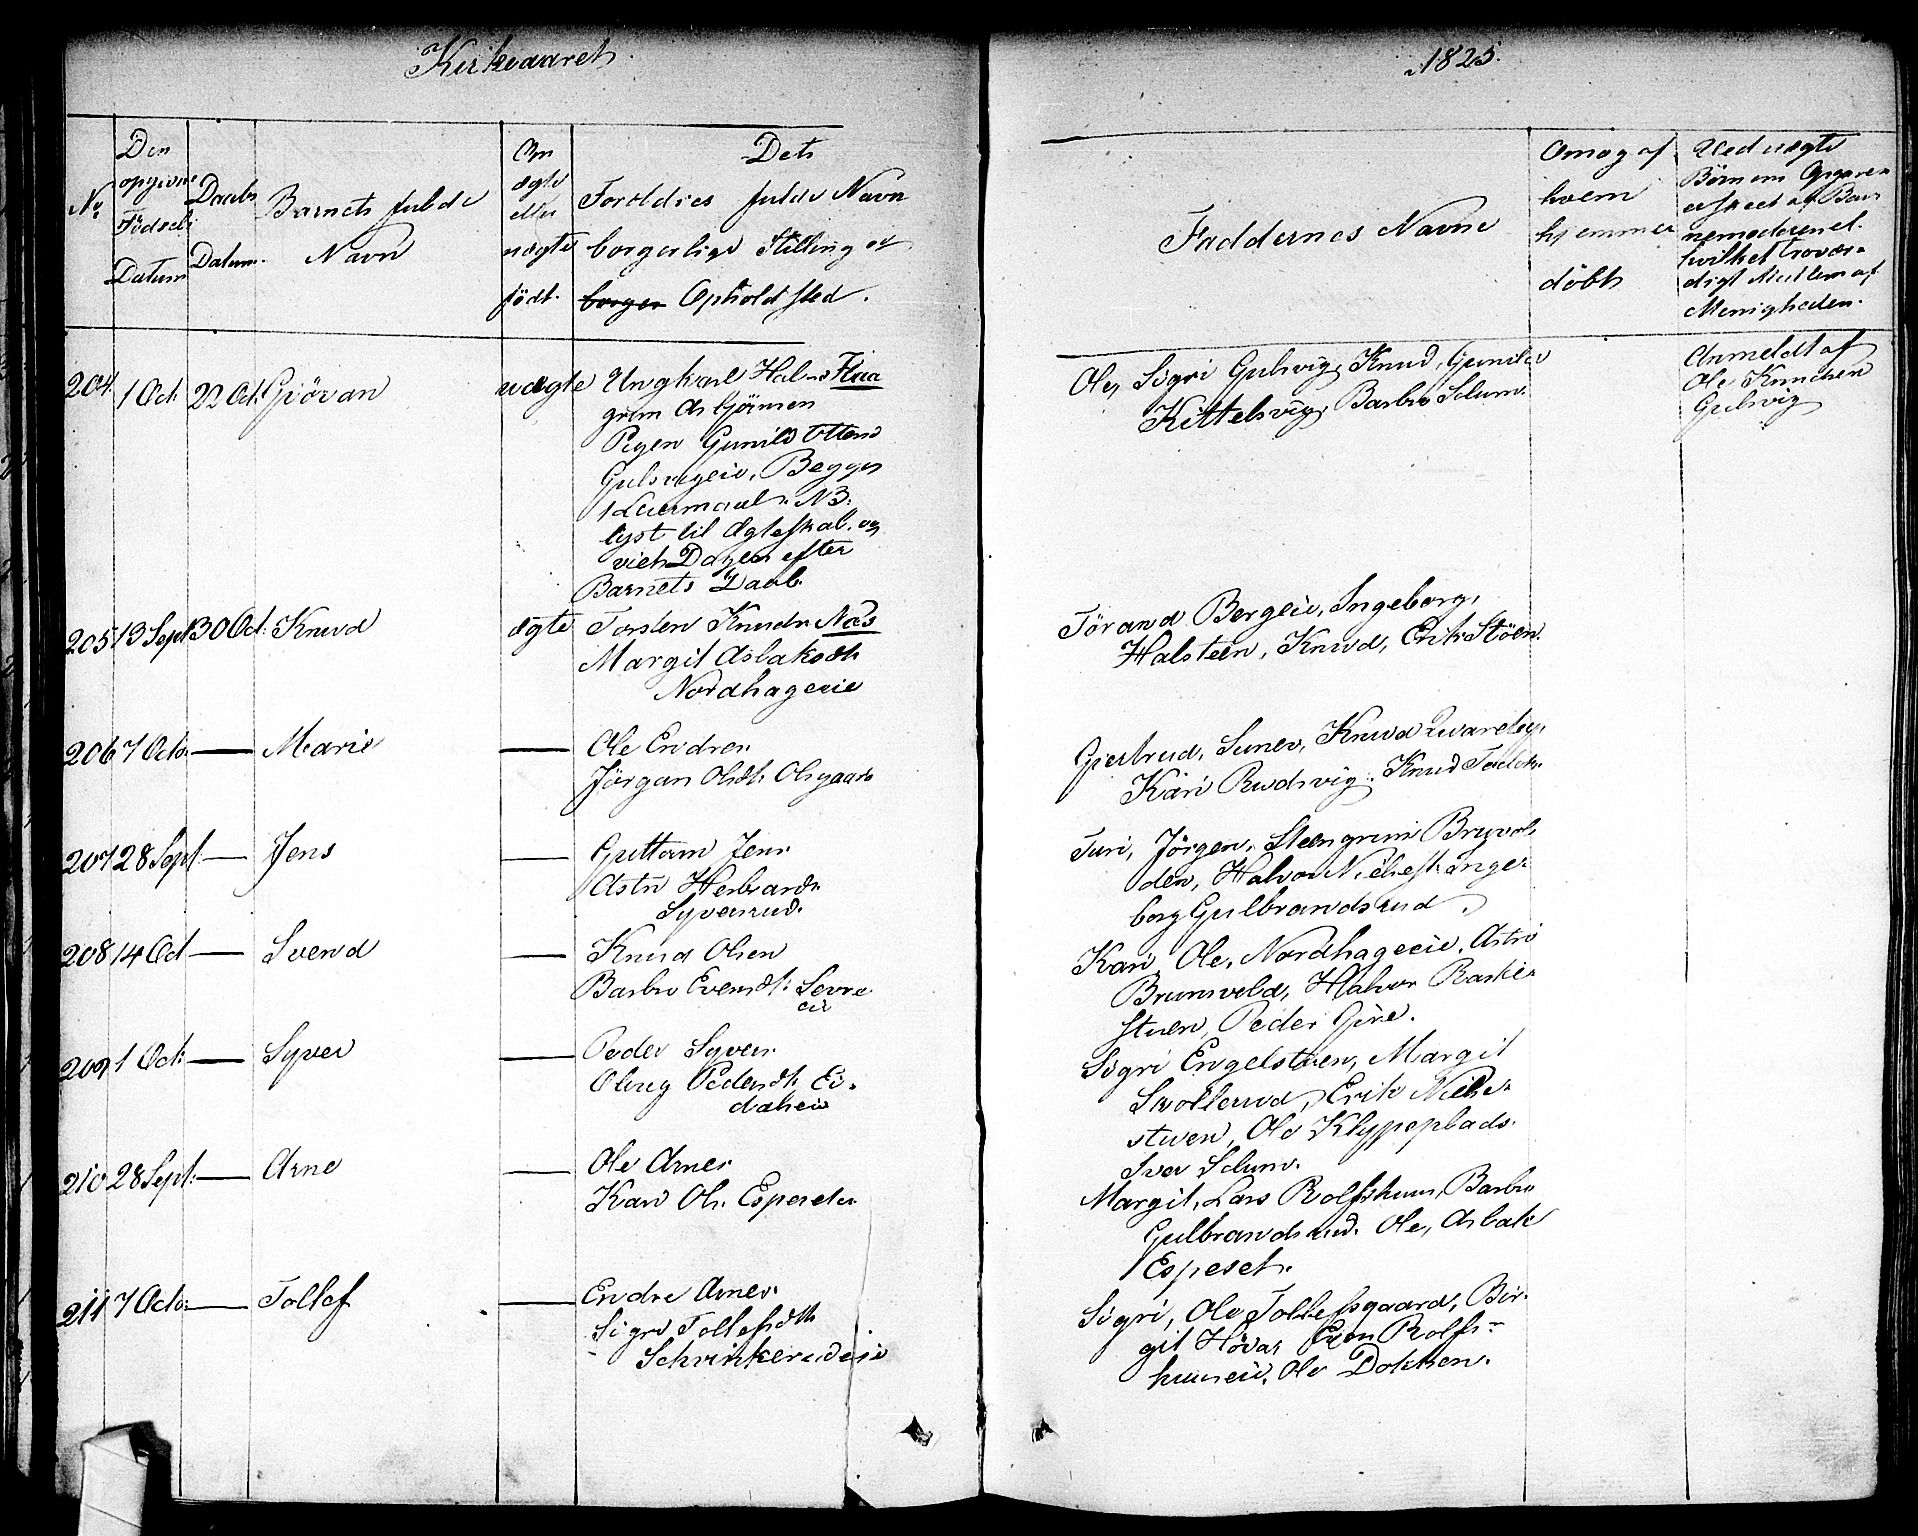 Kirkeaaret
1825.
No
Den
opgivne
Födsels
Datum
Daabs
Datum.
Barnets fulde
Navn
Om
ægte
eller
uægte
födt.
Dets
Forældres fulde Navn
borgerlige Stilling og
borger Opholdsted.
Faddernes Navne
Om og af
hvem
hjemme
döbt
Ved uægte
Börn om Opgaven
er skeet af Bar
nemoderen el.
hvilket trovær-
digt Medlem af
Menigheden.
204 1 Oct. 22 Oct. Gjöran uægte Ungkarl Hal Flaa
grim Asbjörnsen
Pigen Gunild Ottensd
Gulsvigeie, Begges
1 Leiermaal. NB.
lyst til Ægteskab. og
viet Dagen efter
Barnets Daab.
Ole, Sigri Gulsvig, Knud, Gunild
Kittelsvig, Barbro Slum.
Anmeldt af
Ole Knudsen
Gulsvig
205 13 Sept 30 Oct: Knud ægte Torsten Knuds. Næs
Margit Aslaksdt.
Nordhageeie
Törand Bergeie, Ingeborg,
Halsteen, Knud, Erik Stöen.
206 7 Octo: — Marie — Ole Endres.
Jörgan Olsdt. Olsgaard
Gjertrud, Knud
Kari Rudsvig, Knud
207 28 Sept: — Jens — Guttorm Jens.
Astri Herbrands.
Syversrud.
Turi, Jörgen, Steengrim Bruvol-
den, Halvor Nielsest: Inge-
borg Gulbrandsrud.
208 14 Oct — Svend — Knud Olsen
Barbro Evensdt: Sevre
eie
Kari, Ole, Nordhageeie, Astri
Brunsvold, Halvor Bakke-
stuen, Peder
209 1 Oct: — Syver — Peder Syvers.
Olaug Pedersdt. Ei-
dalseie
Sigri Engelstuen, Margit
Skollerud, Erik Nielse-
stuen, Ole Klyppeplads.
Iver Slum.
210 28 Sept: — Arne — Ole Arnes.
Kari Ols. Espesetes
Margit, Lars Rolfshuus, Barbro
Gulbrandsrud. Ole, Aslak
Espeset.
211 7 Octo: — Tollef — Endre Arnes.
Sigri Tollefsdt.
Schvinkerudeie
Sigri, Ole Tollefsgaard, Bir-
git Hövas, Even Rolfs-
huuseie, Ole Dokken.